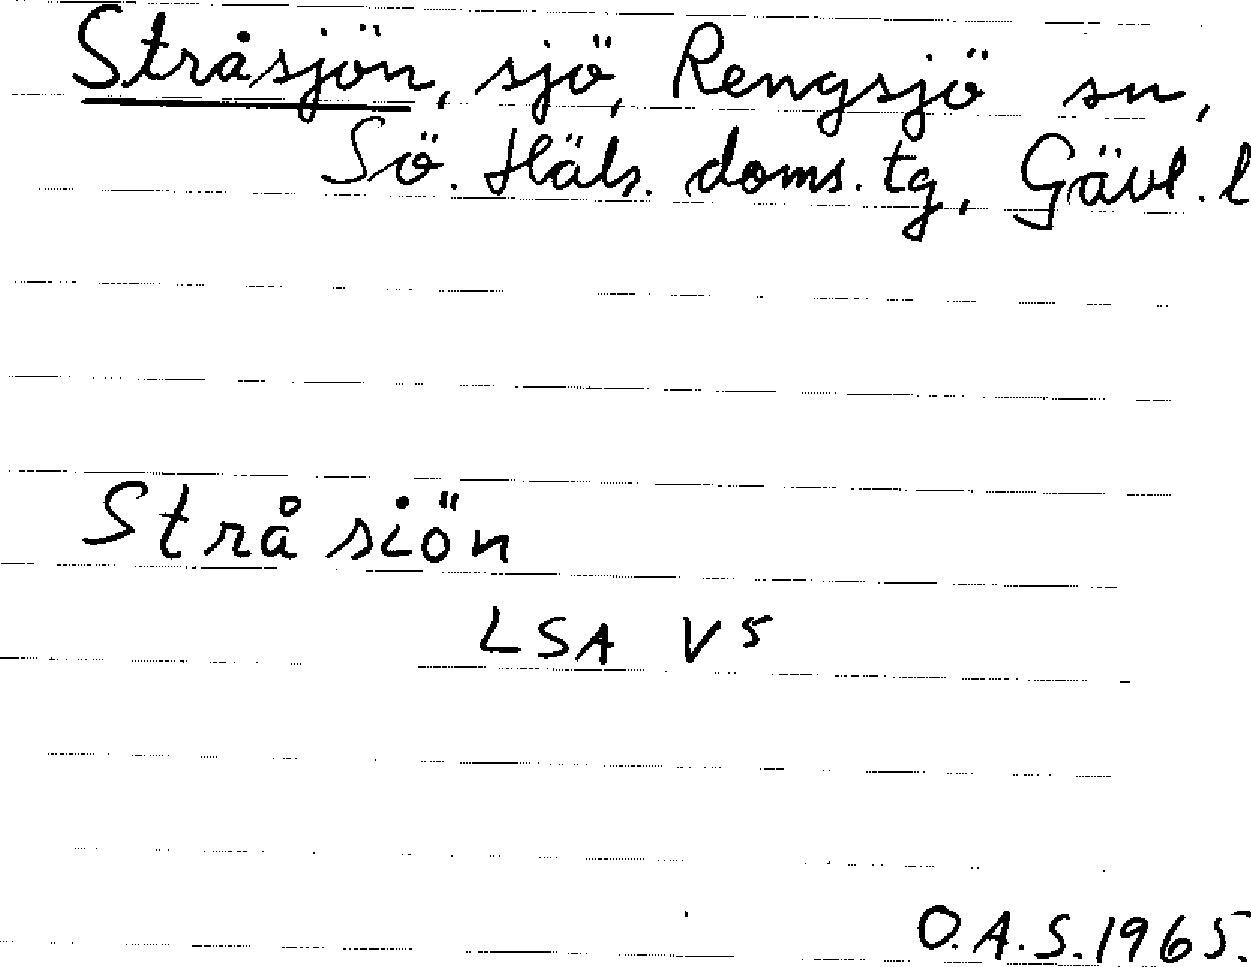 Stråsjön, sjö, Rengsjö sn,
Sö. Häls. doms. tg, Gävl. l
Strå siön
LSA V5
O.A.S. 1965.